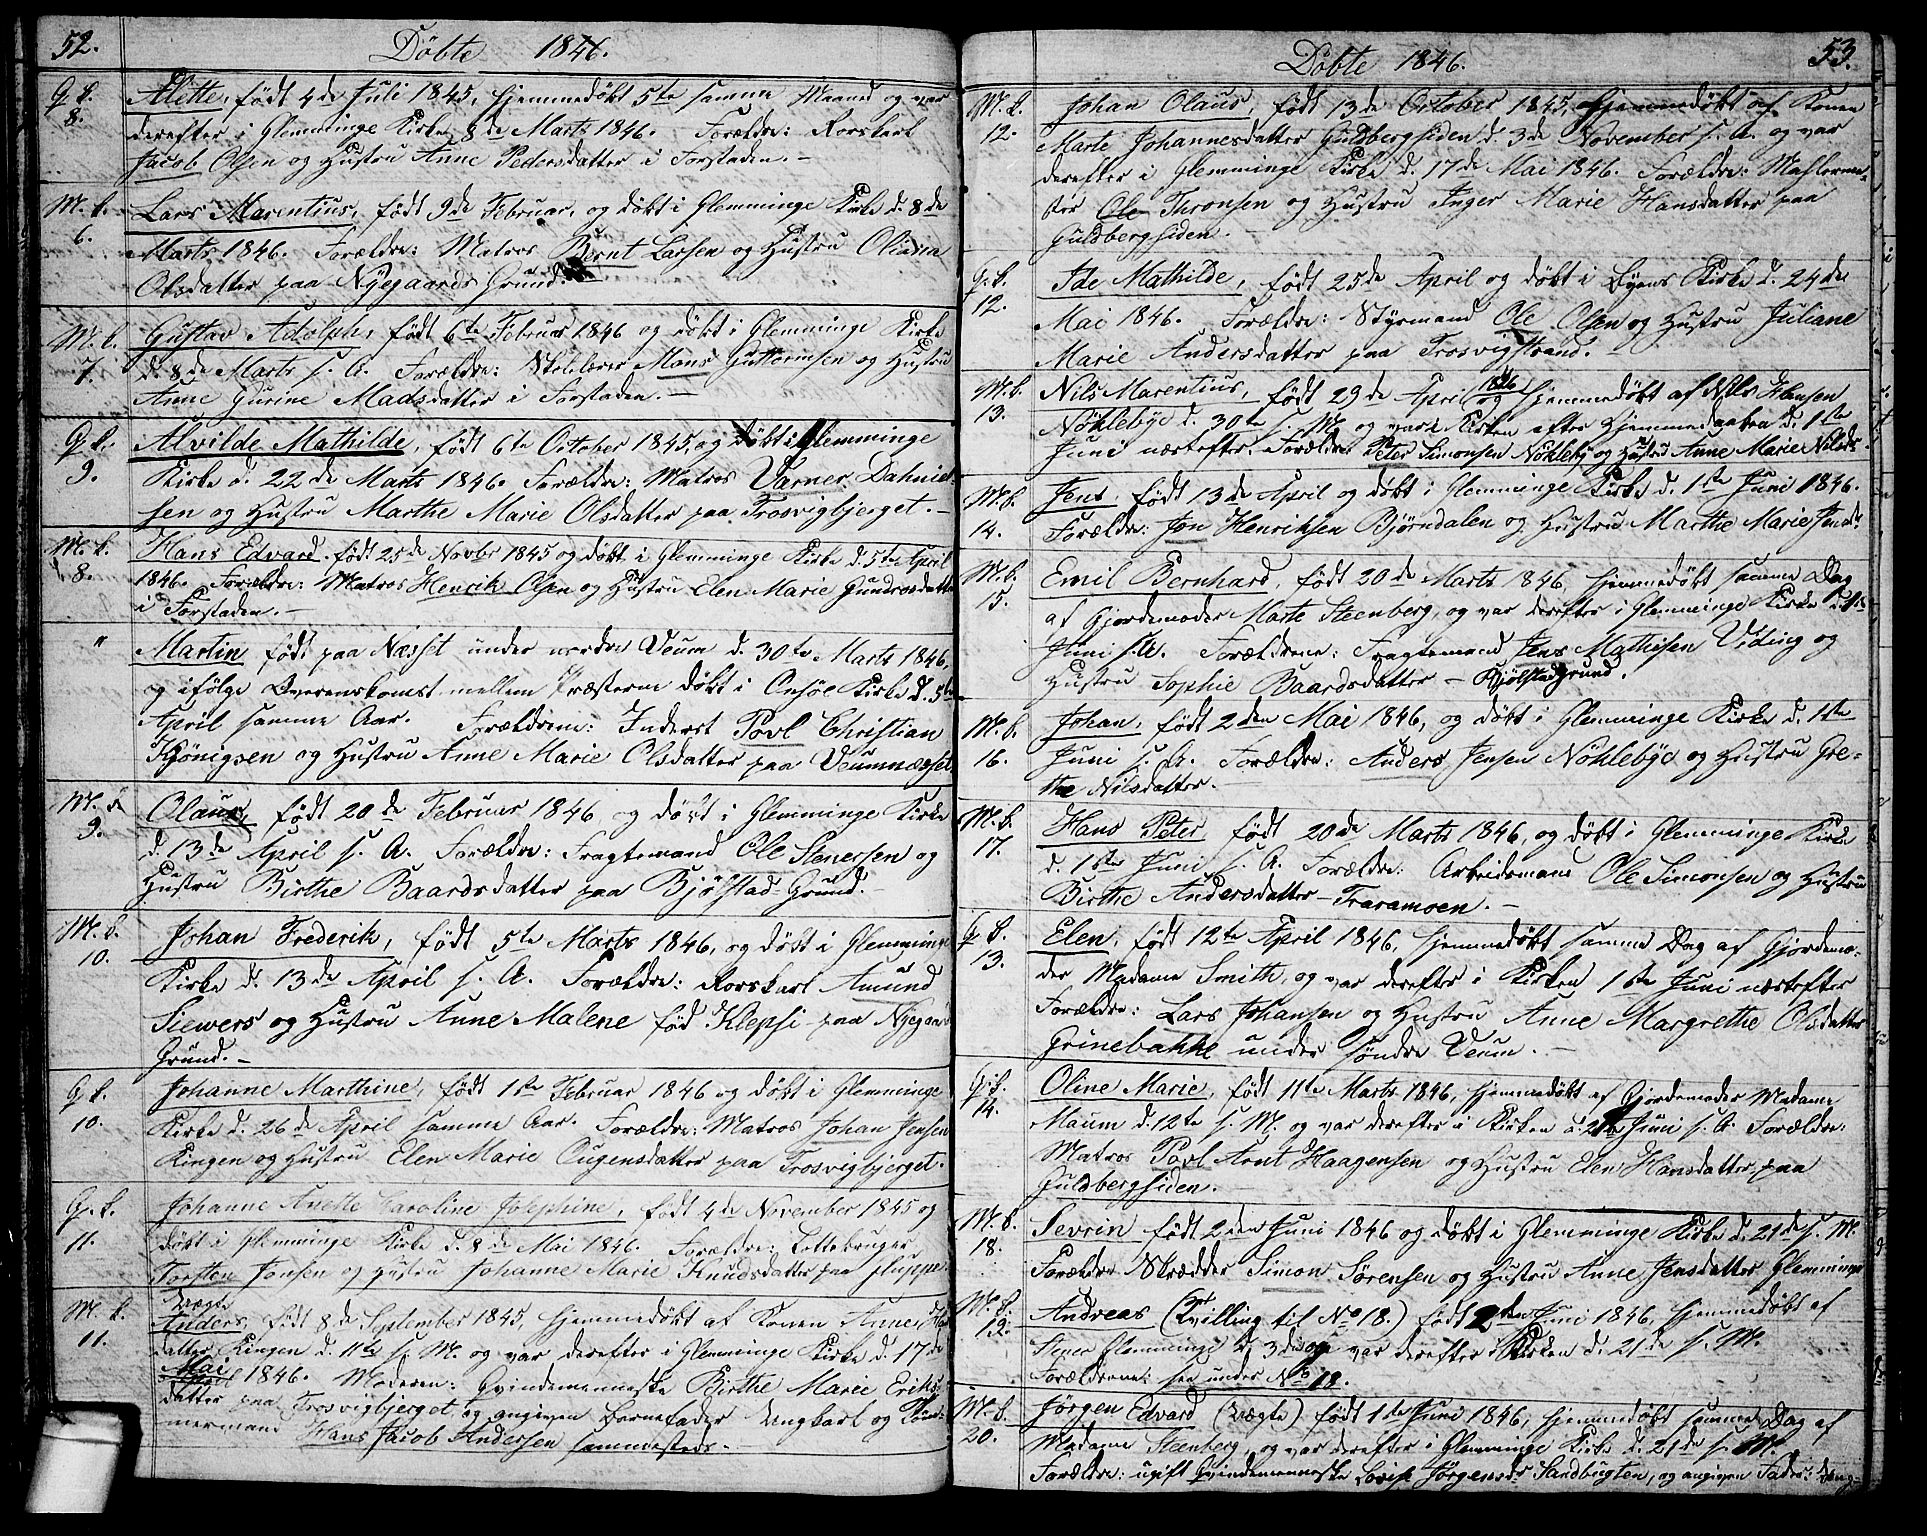 52. Døbte 1846.
Q. k. 8. Alette, født 4de Juli 1845, hjemmedøbt 5te samme Maaned og var
derefter i Glemminge Kirke 8de Marts 1846. Forældre: Rorskarl
Jacob Olsen og Hustru Anne Pedersdatter i Forstaden. -
M. k. 6. Lars Marentius, født 9de Februar, og døbt i Glemminge Kirke d. 8de
Marts 1846. Forældre: Matros Bernt Larsen og Hustru Oliana
Olsdatter paa Nyegaards Grund.
M. k. 7. Gustav Adolph, født 6te Februar 1846 og døbt i Glemminge Kirke
d. 8de Marts s. A. Forældre: Skolelærer Mons Guttormsen og Hustru
Anne Gurine Madsdatter i Forstaden. -
Q. k. 9. Alvilde Mathilde, født 6te October 1845, og døbt i Glemminge
Kirke d. 22de Marts 1846. Forældre: Matros Varner Dahniel-
sen og Hustru Marthe Marie Olsdatter paa Trosvigbjerget. -
M. k. 8. Hans Edvard, født 25de Novbr 1845 og døbt i Glemminge Kirke d. 5te April
1846. Forældre: Matros Henrik Olsen og Hustru Elen Marie Gundrosdatter
i Forstaden. -
" Martin født paa Næsset under nordre Veum d. 30te Marts 1846,
og ifølge Overenskomst mellem Præsterne døbt i Onsøe Kirke d. 5te
April samme Aar. Forældrene: Inderst Povl Christian
Kjönigsen og Hustru Anne Marie Olsdatter paa Veumnæsset
M. k. 9. Olaus, født 20de Februar 1846 og døbt i Glemminge Kirke
d. 13de April s. A. Forældre: Fragtemand Ole Stenersen og
Hustru Birthe Baardsdatter paa Bjølstad-Grund. -
M. k. 10. Johan Frederik, født 5te Marts 1846, og døbt i Glemminge
Kirke d. 13de April s. A. Forældre: Rorskarl Amund
Siewers og Hustru Anne Malene fød Klepsi paa Nyegaards
Grund. -
Q. k. 10. Johanne Marthine, født 1ste Februar 1846 og døbt i Glemminge
Kirke d. 26de April samme Aar. Forældre: Matros Johan Jensen
Ringen og Hustru Elen Marie Eugensdatter paa Trosvigbjerget.
Q. k. 11. Johanne Anette Karoline Josephine, født 4de November 1845 og
døbt i Glemminge Kirke d. 8de Mai 1846. Forældre:
Torsten Jonsen og Hustru Johanne Marie Knudsdatter paa
M. k. 11. Uægte
Anders, født 8de September 1845, hjemmedøbt af Konen Anne
datter Ringen d. 11te s. M. og var derefter i Glemminge Kirke d. 17de
Mai 1846. Moderen: Qvindemenneske Birthe Marie Eriks-
datter paa Trosvigbjerget, og angiven Barnefader Ungkarl og Tøm-
mermand Hans Jacob Andersen sammesteds. -
Døbte 1846. 53.
M. k. 12. Johan Olaus, født 13de October 1845, hjemmedøbt af Konen
Marte Johannesdatter Guldbergsiden d. 3de November s. A. og var
derefter i Glemminge Kirke d. 17de Mai 1846. Forældre:
Ole Thronsen og Hustru Inger Marie Hansdatter paa
Guldbergsiden. -
Q. k. 12. Ide Mathilde, født 25de April og døbt i Øyens Kirke d. 24de
Mai 1846. Forældre: Styrmand Ole Olsen og Hustru Juliane
Marie Andersdatter paa Trosvigstrand. -
M. k. 13. Nils Marentius, født 29de April 1846 og hjemmedøbt af Nils Hansen
Nøklebye d. 30te s. M. og var i Kirken efter Hjemmedaaben d. 1ste
Juni næstefter. Forældre: Peter Simonsen Nøkleby og Hustru Anne Marie Nilsds.
M. k. 14. Jens, født 13de April og døbt i Glemminge Kirke d. 1ste Juni 1846.
Forældre: Jon Henriksen Bjørndalen og Hustru Marthe Marie Jensd.
M. k. 15. Emil Bernhard, født 20de Marts 1846, hjemmedøbt samme Dag
af Gjordemoder Marte Steenberg, og var derefter i Glemminge Kirke d. 1ste
Juni s. A. Forældrene: Fragtemand Jens Mathisen Viding og
Hustru Sophie Baardsdatter - Bjølstadgrund.
M. k. 16. Johan, født 2den Mai 1846, og døbt i Glemminge Kirke d. 1ste
Juni s. A. Forældre: Anders Jensen Nøklebye og Hustru Gre-
the Nilsdatter. -
M. k. 17. Hans Peter, født 20de Marts 1846, og døbt i Glemminge Kirke
d. 1ste Juni s. A. Forældre: Arbeidsmand Ole Simonsen og Hustru
Birthe Andersdatter - Traramoen. -
Q. k. 13. Elen, født 12te April 1846, hjemmedøbt samme Dag af Gjordemo-
der Madame Smith, og var derefter i Kirken 1ste Juni næstefter
Forældre: Lars Johansen og Hustru Anne Margrethe Olsdatter
Grinebakke under søndre Veum. -
Q. k. 14. Oline Marie, født 11te Marts 1846, hjemmedøbt af Gjordemoder Madame
Maum d. 12te s. M. og var derefter i Kirken d. Juni s. A. Forældre:
Matros Povl Arnt Haagensen og Hustru Elen Hansdatter paa
Guldbergsiden.
M. k. 18. Sevrin født 2den Juni 1846 og døbt i Glemminge Kirke d. 21de s. M.
Forældre Skrædder Simon Sørensen og Hustru Anne Jensdatter Glemminge
M. k. 19. Andreas (Tvilling til No 18.) født 2den Juni 1846, hjemmedøbt af
Glemminge d. 3de og var derefter i Kirken d. 21de s. M.
Forældrene: see under No 18.
M. k. 20. Jørgen Edvard (Uægte) født 1ste Juni 1846, hjemmedøbt samme Dag af
Madame Steenberg, og var derefter i Glemminge Kirke d. 21de s. M.
Forældre: ugift Qvindemenneske Lovise Jørgensdr Sandbugten, og angiven Fader: Ung-